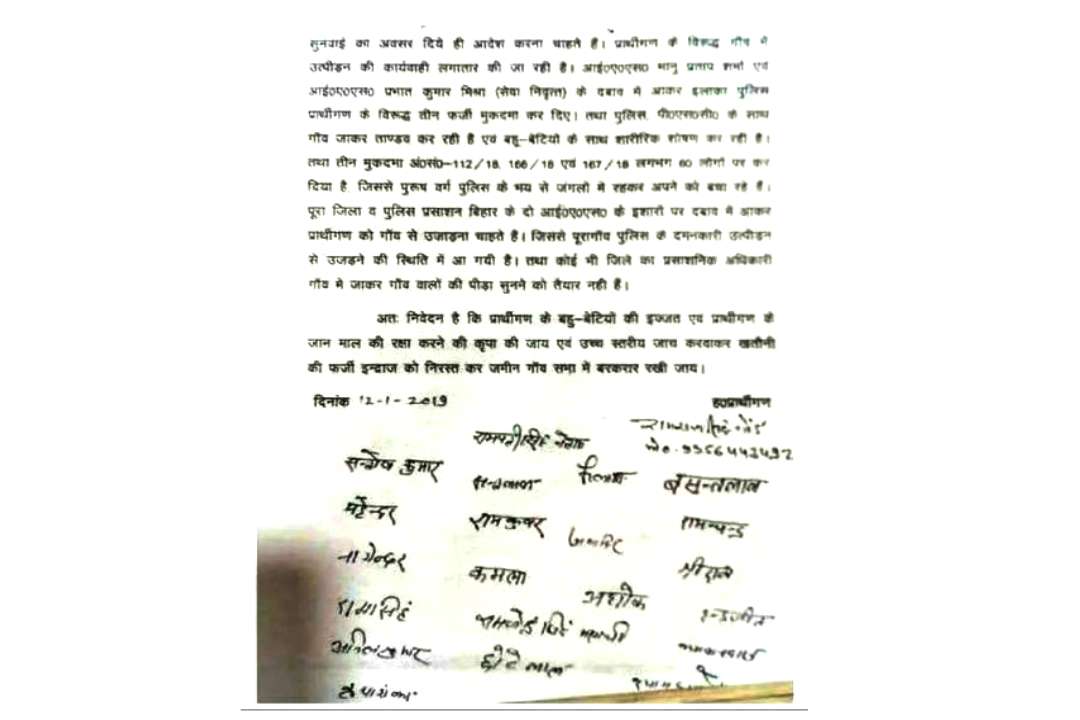 सुनवाई का अवसर दिये ही आदेश करना चाहते हैं। प्रार्थीगण के विरूद्ध गाँव में
उत्पीड़न की कार्यवाही लगातार की जा रही है। आई०ए०एस० भानु प्रताप शर्मा एवं
आई०ए०एस० प्रभात कुमार मिश्रा (सेवा निवृत्त) के दबाव में आकर इलाका पुलिस
प्रार्थीगण के विरूद्ध तीन फर्जी मुकदमा कर दिए। तथा पुलिस, पी०एस०सी० के साथ
गाँव जाकर ताण्डव कर रही है एवं बहु–बेटियो के साथ शारीरिक शोषण कर रही है।
तथा तीन मुकदमा अं०सं०–112/18, 166/18 एवं 167/18 लगभग 60 लोगों पर कर
दिया है, जिससे पुरूष वर्ग पुलिस के भय से जंगलो में रहकर अपने को बचा रहे हैं।
पूरा जिला व पुलिस प्रसाशन बिहार के दो आई०ए०एस० के इशारों पर दबाव में आकर
प्रार्थीगण को गाँव से उजाड़ना चाहते हैं। जिससे पूरागाँव पुलिस के दमनकारी उत्पीड़न
से उजड़ने की स्थिति में आ गयी है। तथा कोई भी जिले का प्रसाशनिक अधिकारी
गाँव मे जाकर गाँव वालों की पीड़ा सुनने को तैयार नही हैं।
अतः निवेदन है कि प्रार्थीगण के बहु–बेटियों की इज्जत एवं प्रार्थीगण के
जान माल की रक्षा करने की कृपा की जाय एवं उच्च स्तरीय जाच करवाकर खतौनी
की फर्जी इन्द्राज को निरस्त कर जमीन गाँव सभा में बरकरार रखी जाय।
दिनांक 12-1-2019 ह०प्रार्थीगण
मो०-9956443492
रामपती सिंह
सन्तोष कुमार बसन्तलाल
महेन्दर रामकुवर रामचन्द्र
नागेन्दर कमला श्रीराम
अशोक इन्द्रजीत
रामासिंह
अनिल कुमार छोटे लाल